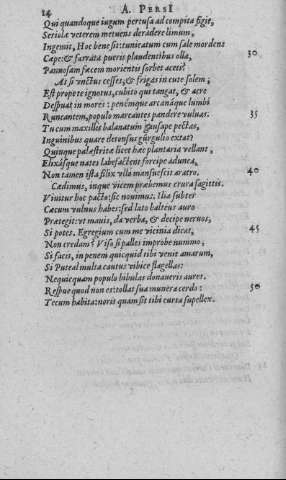 14 A. PERSI
Qui quandoque iugum pertusa ad compita figit,
Seriolæ veterem metuens deradere limum,
Ingemit, Hoc bene sit: tunicatum cum sale mordens
Cæpe: & farrata pueris plaudentibus olla, 30
Pannosam fæcem morientis sorbet aceti?
At si vnctus cesses, & frigas in cute solem;
Est prope te ignotus, cubito qui tangat, & acre
Despuat in mores: penémque arcanáque lumbi
Runcantem, populo marcentes pandere vuluas. 35
Tu cum maxillis balanatum gausape pectas,
Inguinibus quare detonsus gurgulio extat?
Quinque palæstritæ licet hæc plantaria vellant,
Elixásque nates labefactent forcipe adunca,
Non tamen ista filix vllo mansuescit aratro. 40
Cædimus, inque vicem præbemus crura sagittis.
Viuitur hoc pacto: sic nouimus. Ilia subter
Cæcum vulnus habes: sed lato balteus auro
Prætegit: vt mauis, da verba, & decipe neruos,
Si potes. Egregium cum me vicinia dicat, 45
Non credam? Viso si palles improbe nummo,
Si facis, in penem quicquid tibi venit amarum,
Si Puteal multa cautus vibice flagellas:
Nequicquam populo bibulas donaueris aures.
Respue quod non es: tollat sua munera cerdo: 50
Tecum habita: noris quam sit tibi curta supellex.